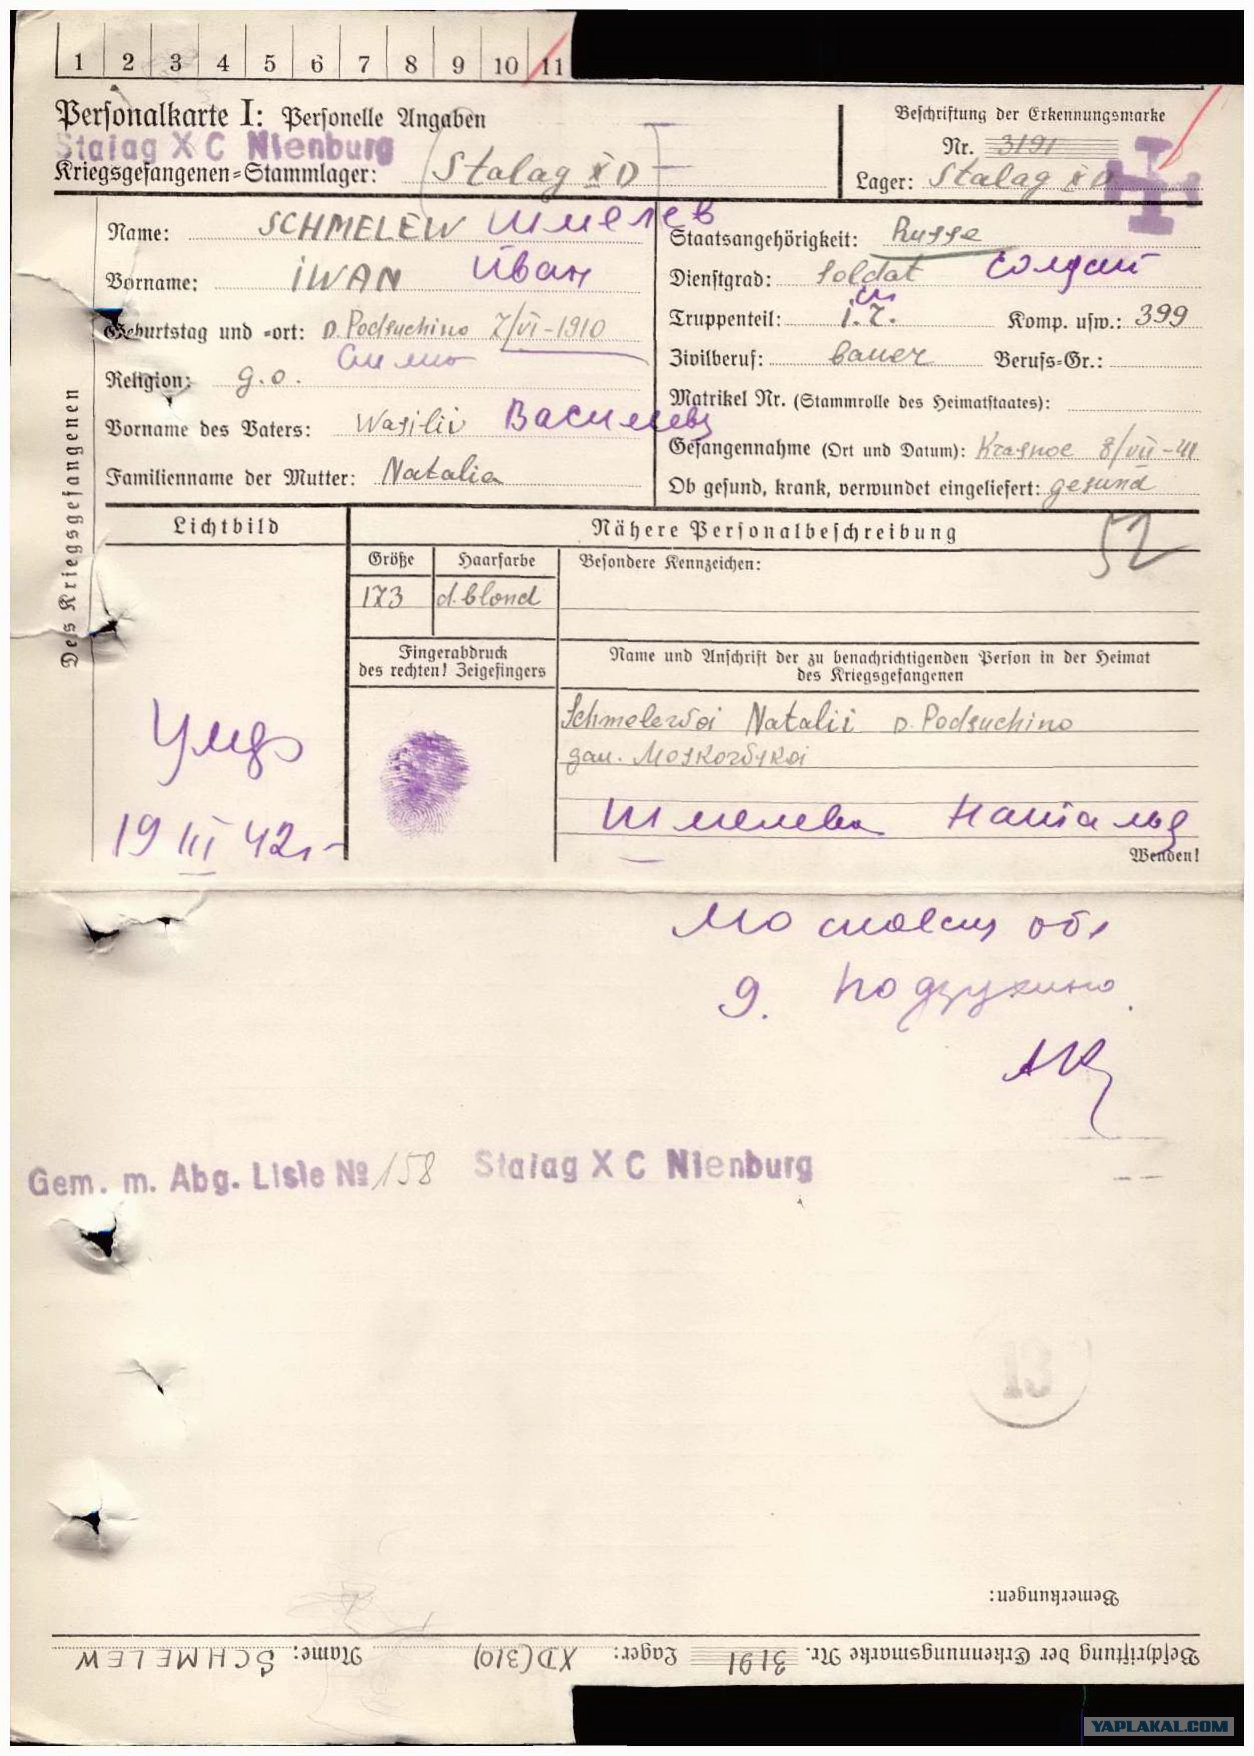 1 2 3 4 5 6 7 8 9 10 11
Personalkarte I: Personelle Angaben
Stalag X C Nienburg
Kriegsgefangenen=Stammlager: Stalag X D
Beschriftung der Erkennungsmarke
Nr. 3191
Lager: Stalag X D
Des Kriegsgefangenen
Name: SCHMELEW Шмелев
Vorname: IWAN Иван
Geburtstag und =ort: D. Podsuchino 7/VI-1910
Religion: g.o.
Vorname des Vaters: Wasilii
Familienname der Mutter: Natalia
Staatsangehörigkeit: Russe
Dienstgrad: Soldat Солдат
Truppenteil: Komp. usw.: 399
Zivilberuf: bauer Berufs=Gr.:
Matrikel Nr. (Stammrolle des Heimatstaates):
Gefangennahme (Ort und Datum): Krasnoe 8/VII-41
Ob gesund, krank, verwundet eingeliefert: gesund
Lichtbild
Nähere Personalbeschreibung
52
Größe Haarfarbe Besondere Kennzeichen:
173 d. blond
Fingerabdruck
des rechten! Zeigefingers
Name und Anschrift der zu benachrichtigenden Person in der Heimat
des Kriegsgefangenen
Schmelewoi Natalii D. Podsuchino
Шмелева
19 III 42
Wenden!
обл
д. Подзухино
Gem. m. Abg. Liste № 158 Stalag X C Nienburg
13
Bemerkungen:
Beschriftung der Erkennungsmarke Nr. 3191 Lager: XD(310) Name: SCHMELEW
YAPLAKAL.COM